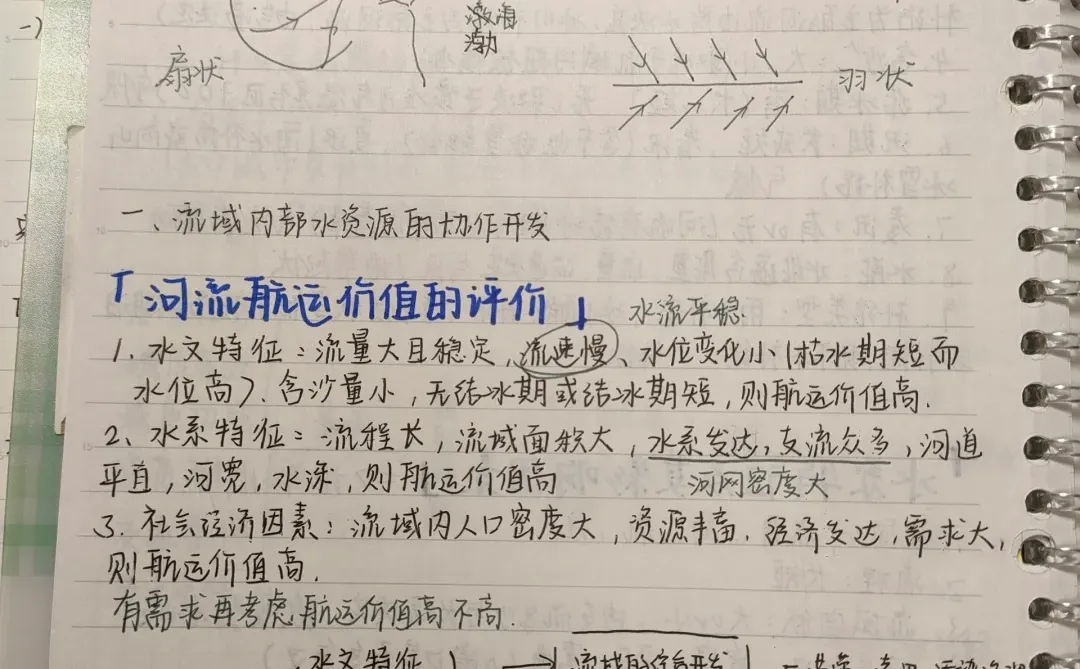 渤海
渤
扇状
羽状
一、流域内部水资源的协作开发
「河流航运价值的评价」
水流平稳.
1. 水文特征：流量大且稳定、流速慢、水位变化小（枯水期短而
水位高）、含沙量小，无结冰期或结冰期短，则航运价值高.
2、水系特征：流程长，流域面积大，水系发达，支流众多，河道
平直，河宽，水深，则航运价值高
河网密度大
3. 社会经济因素：流域内人口密度大，资源丰富，经济发达，需求大，
则航运价值高.
有需求再考虑航运价值高不高.
水文特征
流域的综合开发